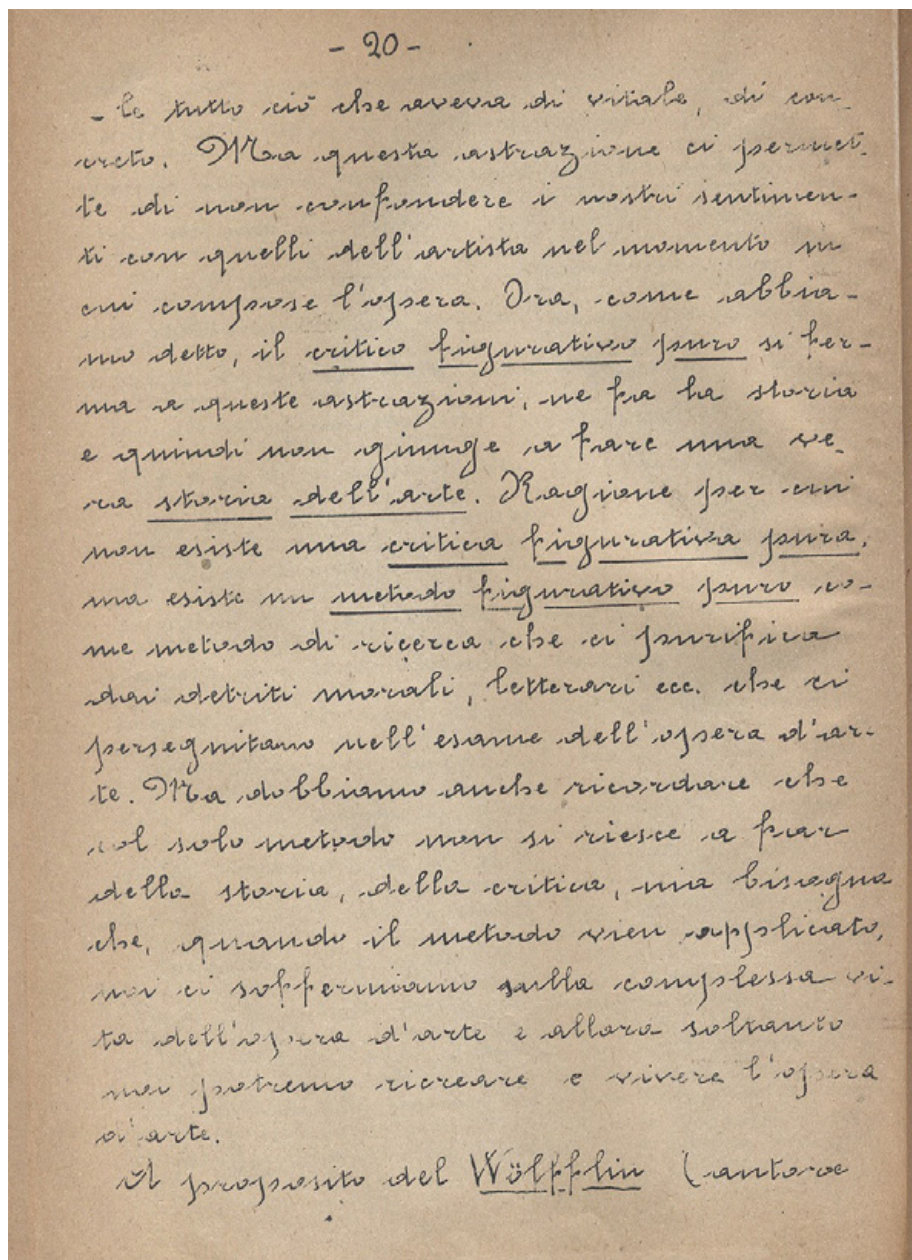 - 20 -
- le tutto ciò che aveva di vitale, di con-
creto. Ma questa astrazione ci permet-
te di non confondere i nostri sentimen-
ti con quelli dell'artista nel momento in
cui compose l'opera. Ora, come abbia-
mo detto, il critico figurativo puro si fer-
ma a queste astrazioni, ne fa la storia
e quindi non giunge a fare una ve-
ra storia dell'arte. Ragione per cui
non esiste una critica figurativa pura,
ma esiste un metodo figurativo puro co-
me metodo di ricerca che ci purifica
dai detriti morali, letterari ecc. che ci
perseguitano nell'esame dell'opera d'ar-
te. Ma dobbiamo anche ricordare che
col solo metodo non si riesce a far
della storia, della critica, ma bisogna
che, quando il metodo vien applicato,
noi ci soffermiamo sulla complessa vi-
ta dell'opera d'arte e allora soltanto
noi potremo ricreare e vivere l'opera
d'arte.
Il proposito del Wölfflin (autore